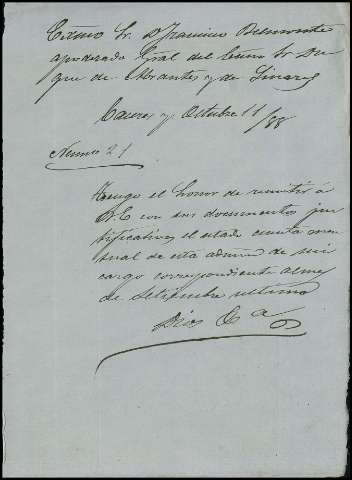 Excmo Sr. D Francisco Belmonte
apoderado Gral del Excmo Sr Du
que de Abrantes y de Linares
Caceres y Octubre 11/88
Numero 21
Tengo el honor de remitir á
V.E con sus documentos jus
tificativos el estado cuenta men
sual de esta admon de mi
cargo correspondiente al mes
de Setiembre ultimo
Dios &a